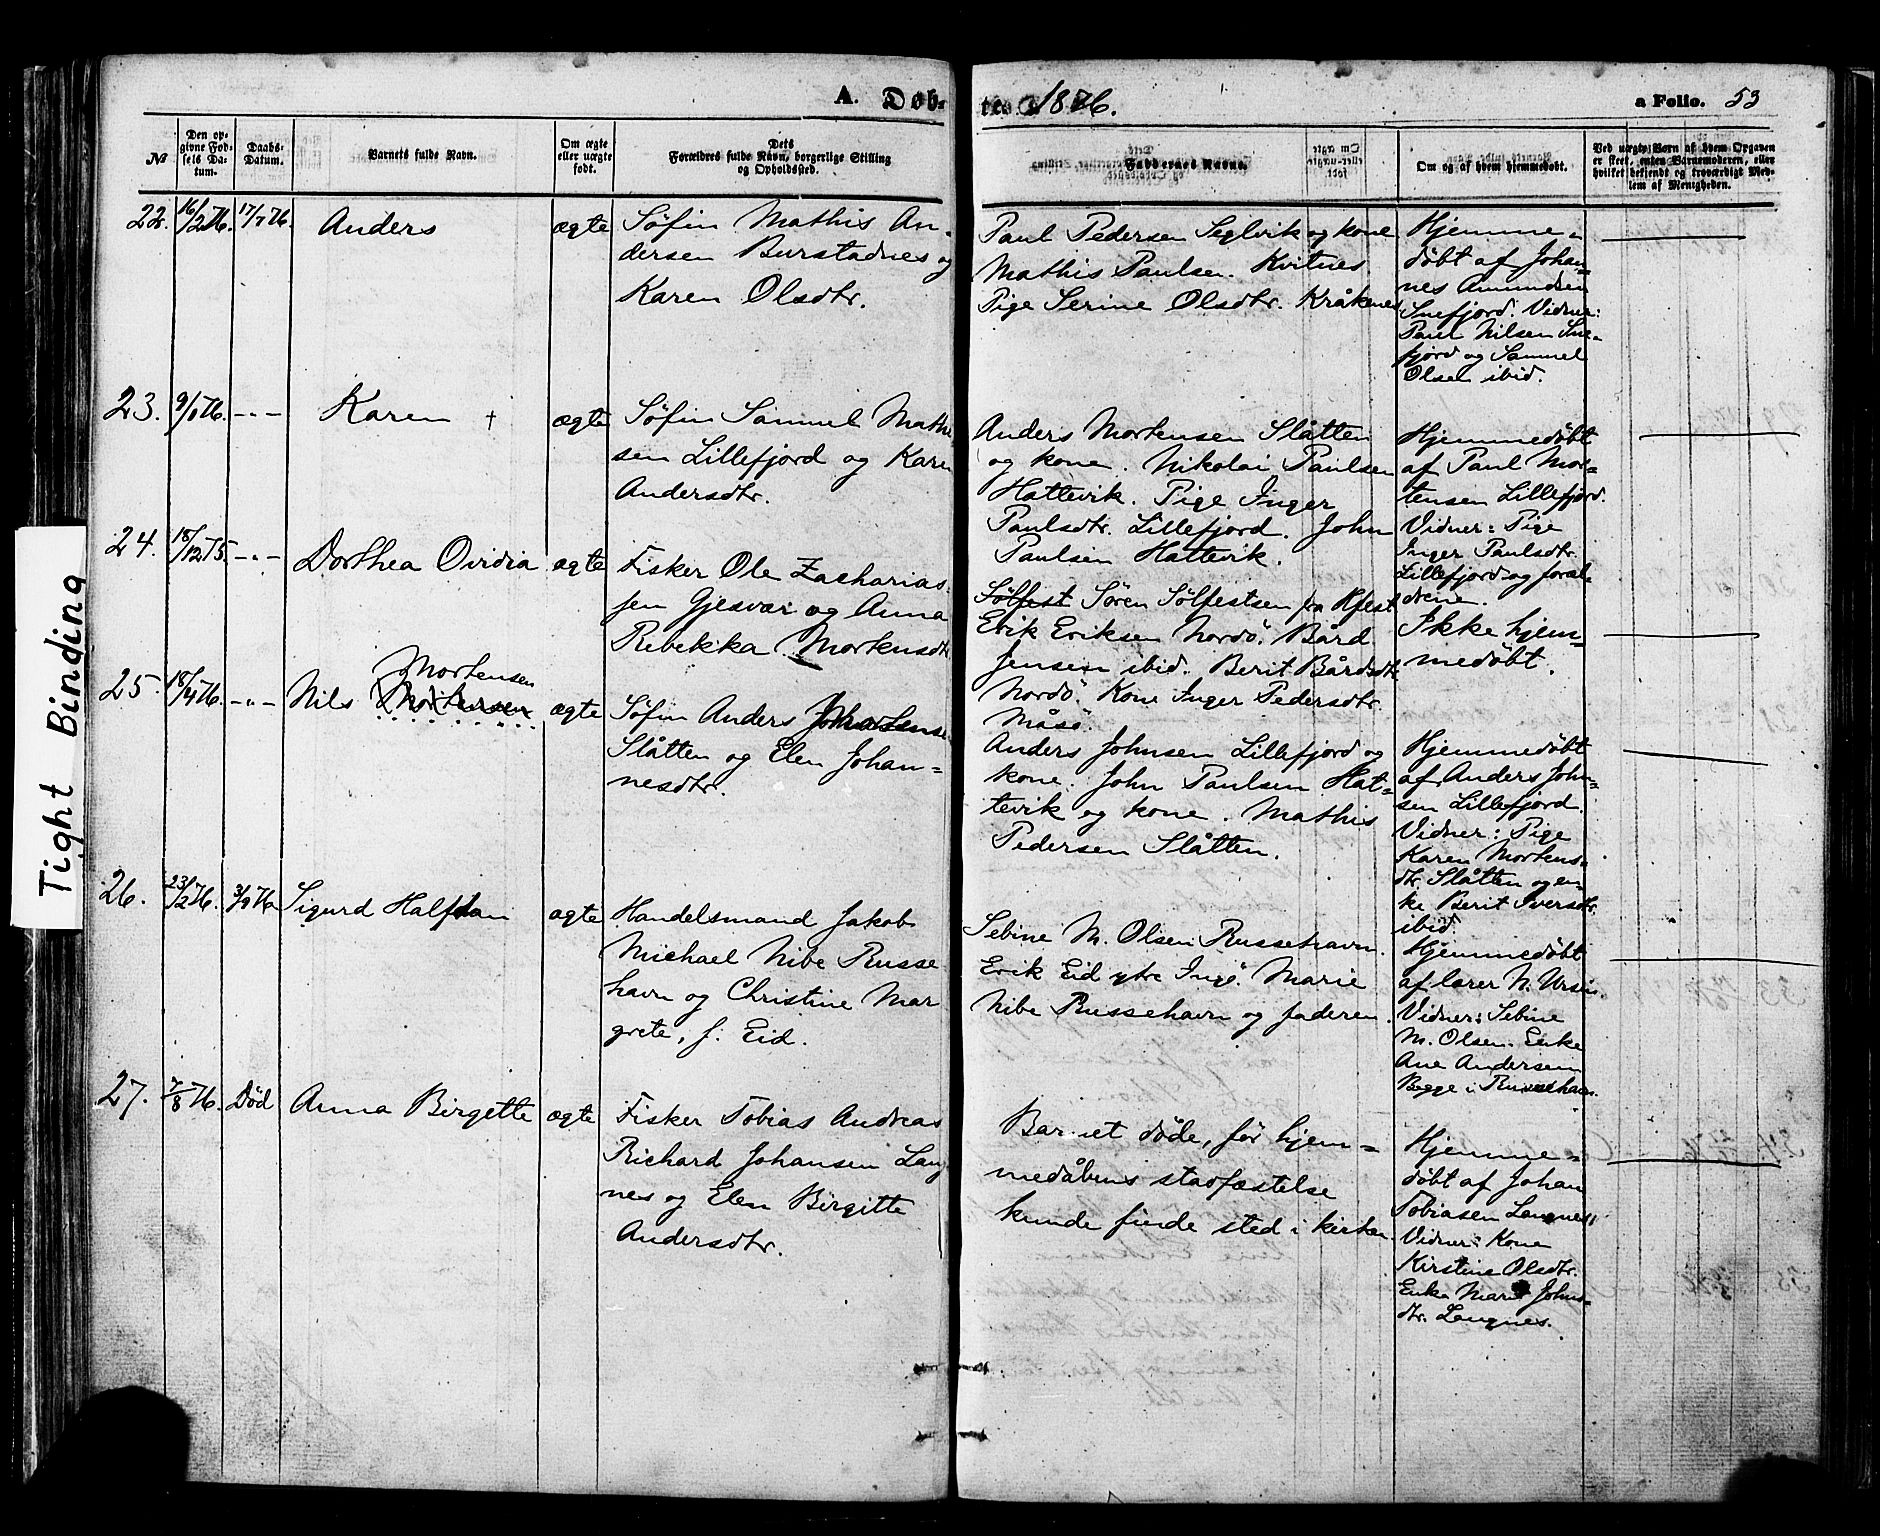 A. Døb-
te. 1876.
a Folio. 53
№
Den op-
givne Fød-
sels Da-
tum.
Daabs-
Datum.
Barnets fulde Navn.
Om ægte
eller uægte
født.
Dets
Forældres fulde Navn, borgerlige Stilling
og Opholdssted.
Faddernes Navne.
Om og af hvem hjemmedøbt.
Ved uægte Børn af hvem Opgaven
er skeet, enten Barnemoderen, eller
hvilket bekjendt og troværdigt Med-
lem af Menigheden.
22. 16/2 76. 17/7 76. Anders ægte
Søfin Mathis An-
dersen Burstadnes og
Karen Olsdtr.
Paul Pedersen Seglvik og kone
Mathis Paulsen. Kvitnes
Pige Serine Olsdtr. Kråkenes
Hjemme-
døbt af Johan-
nes Amundsen
Snefjord. Vidner:
Paul Nilsen Sne-
fjord og Sammel
Olsen ibid.
23. 9/1 76. -"- Karen + ægte
Søfin Samuel Mathi
sen Lillefjord og Karen
Andersdtr.
Anders Mortensen Slåtten
og kone. Nikolai Paulsen
Hattevik. Pige Inger
Paulsdtr. Lillefjord. John
Paulsen Hattevik.
Hjemmedøbt
af Paul Mor-
tensen Lillefjord.
Vidner: Pige
Inger Paulsdtr.
Lillefjord og foræl-
drene.
24. 18/12 75. -"- Dorthea Ovidia ægte
Fisker Ole Zacharias-
sen Gjesvær og Anna
Rebekka Mortensdtr
Sølfest Søren Sølfestsen fra
Erik Eriksen Nordö. Bård
Jensen ibid. Berit Bårdsdtr.
Nordö. Kone Inger Pedersdtr.
Måsö.
Ikke hjem-
medøbt.
25. 18/4 76. -"- Nils Mortensen ægte
Søfin Anders
Slåtten og Elen Johan-
nesdtr.
Anders Johnsen Lillefjord og
kone. John Paulsen Hat-
tevik og kone. Mathis
Pedersen Slåtten.
Hjemmedøbt
af Anders John-
sen Lillefjord.
Vidner: Pige
Karen Mortens-
dtr. Slåtten og en-
ke Berit Iversdtr.
ibid.
26. 23/2 76. 3/9 76 Sigurd Halfdan ægte
Handelsmand Jakob
Michael Nibe Russe-
havn og Christine Mar
grete, f. Eid.
Sebine M. Olsen Russehavn.
Erik Eid ytre Ingö. Marie
Nibe Russehavn og faderen.
Hjemmedøbt
af lærer N. Ursin.
Vidner: Sebine
M. Olsen. Enke
Ane Andersen
Begge i Russehavn.
27. 7/8 76. Død Anna Birgette ægte
Fisker Tobias Andreas
Richard Johansen Lang
nes og Elen Birgitte
Andersdtr.
Barnet døde, før hjem-
medåbens stadfæstelse
kunde finde sted i kirken.
Hjemme-
døbt af Johan
Tobiasen Langnes.
Vidner: Kone
Kirstine Olsdtr.
Enke Marie Johns-
dtr. Langnes.
Tight Binding